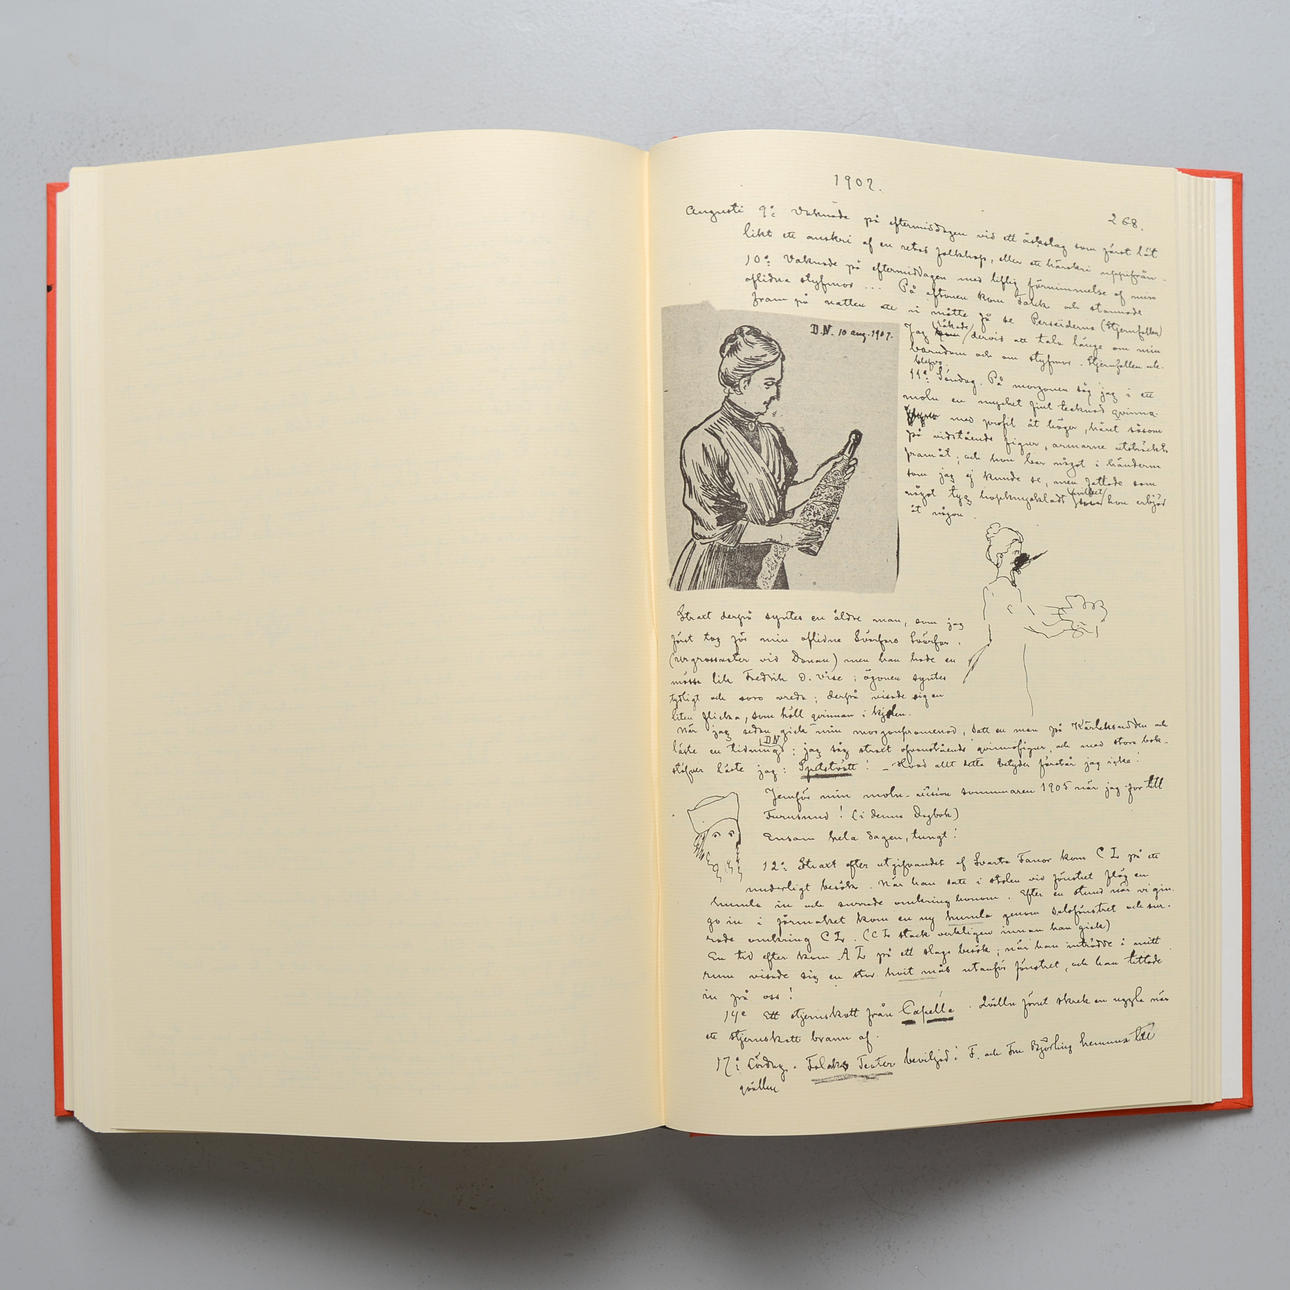 1907.
268.
Augusti 9e Vaknade på eftermiddagen vid ett åskslag som först lät
likt ett anskri af en retad folkhop, eller ett härskri uppifrån.
10e Vaknade på eftermiddagen med liflig förnimmelse af min
aflidna styfmor ... På aftonen kom Falck och stannade
fram på natten att vi måtte få se Perseiderna (Stjernfallen)
D.N. 10 aug. 1907.
Jag råkade dervid att tala länge om min
barndom och om styfmor. Stjernfallen
uteblefvo.
11e Söndag. På morgonen såg jag i ett
moln en mycket fint tecknad qvinna
med profil åt höger, håret såsom
på vidstående figur, armarne utsträckta
framåt, och hon bar något i händerna
som jag ej kunde se, men fattade som
något tyg hopknyckladt hvilket hon erbjöd
åt någon.
Straxt derpå syntes en äldre man, som jag
först tog för min aflidne Svärfars Svärfar.
(vid Donau) men han hade en
mössa lik Fredrik d. vise; ögonen syntes
tydligt och voro vreda; derpå visade sig en
liten flicka, som höll qvinnan i kjolen.
När jag sedan gick min morgonpromenad, satt en man på Karlavägen och
läste en tidning DN; jag såg straxt ofvanstående qvinnofigur, och med stora bok-
stäfver läste jag: Spetstrött! – Hvad allt detta betyder förstår jag icke!
Jemför min moln-vision sommaren 1905 när jag for till
Furusund! (i denna Dagbok)
Ensam hela dagen, tungt!
12e Straxt efter utgifvandet af Svarta Fanor kom C L på ett
underligt besök. När han satt i stolen vid fönstret flög en
humla in och surrade omkring honom. Efter en stund när vi gin-
go in i förmaket kom en ny humla genom salsfönstret och sur-
rade omkring CL. (CL stack verkligen innan han gick)
En tid efter kom A L på ett slags besök; när han inträdde i mitt
rum visade sig en stor hvit mås utanför fönstret, och han tittade
in på oss!
14e Ett stjernskott från Capella. Qvällen förut skrek en uggla när
ett stjernskott brann af.
17e Lördag. Falcks Teater beviljad! F. och Fru Björling hemma till
qvällen